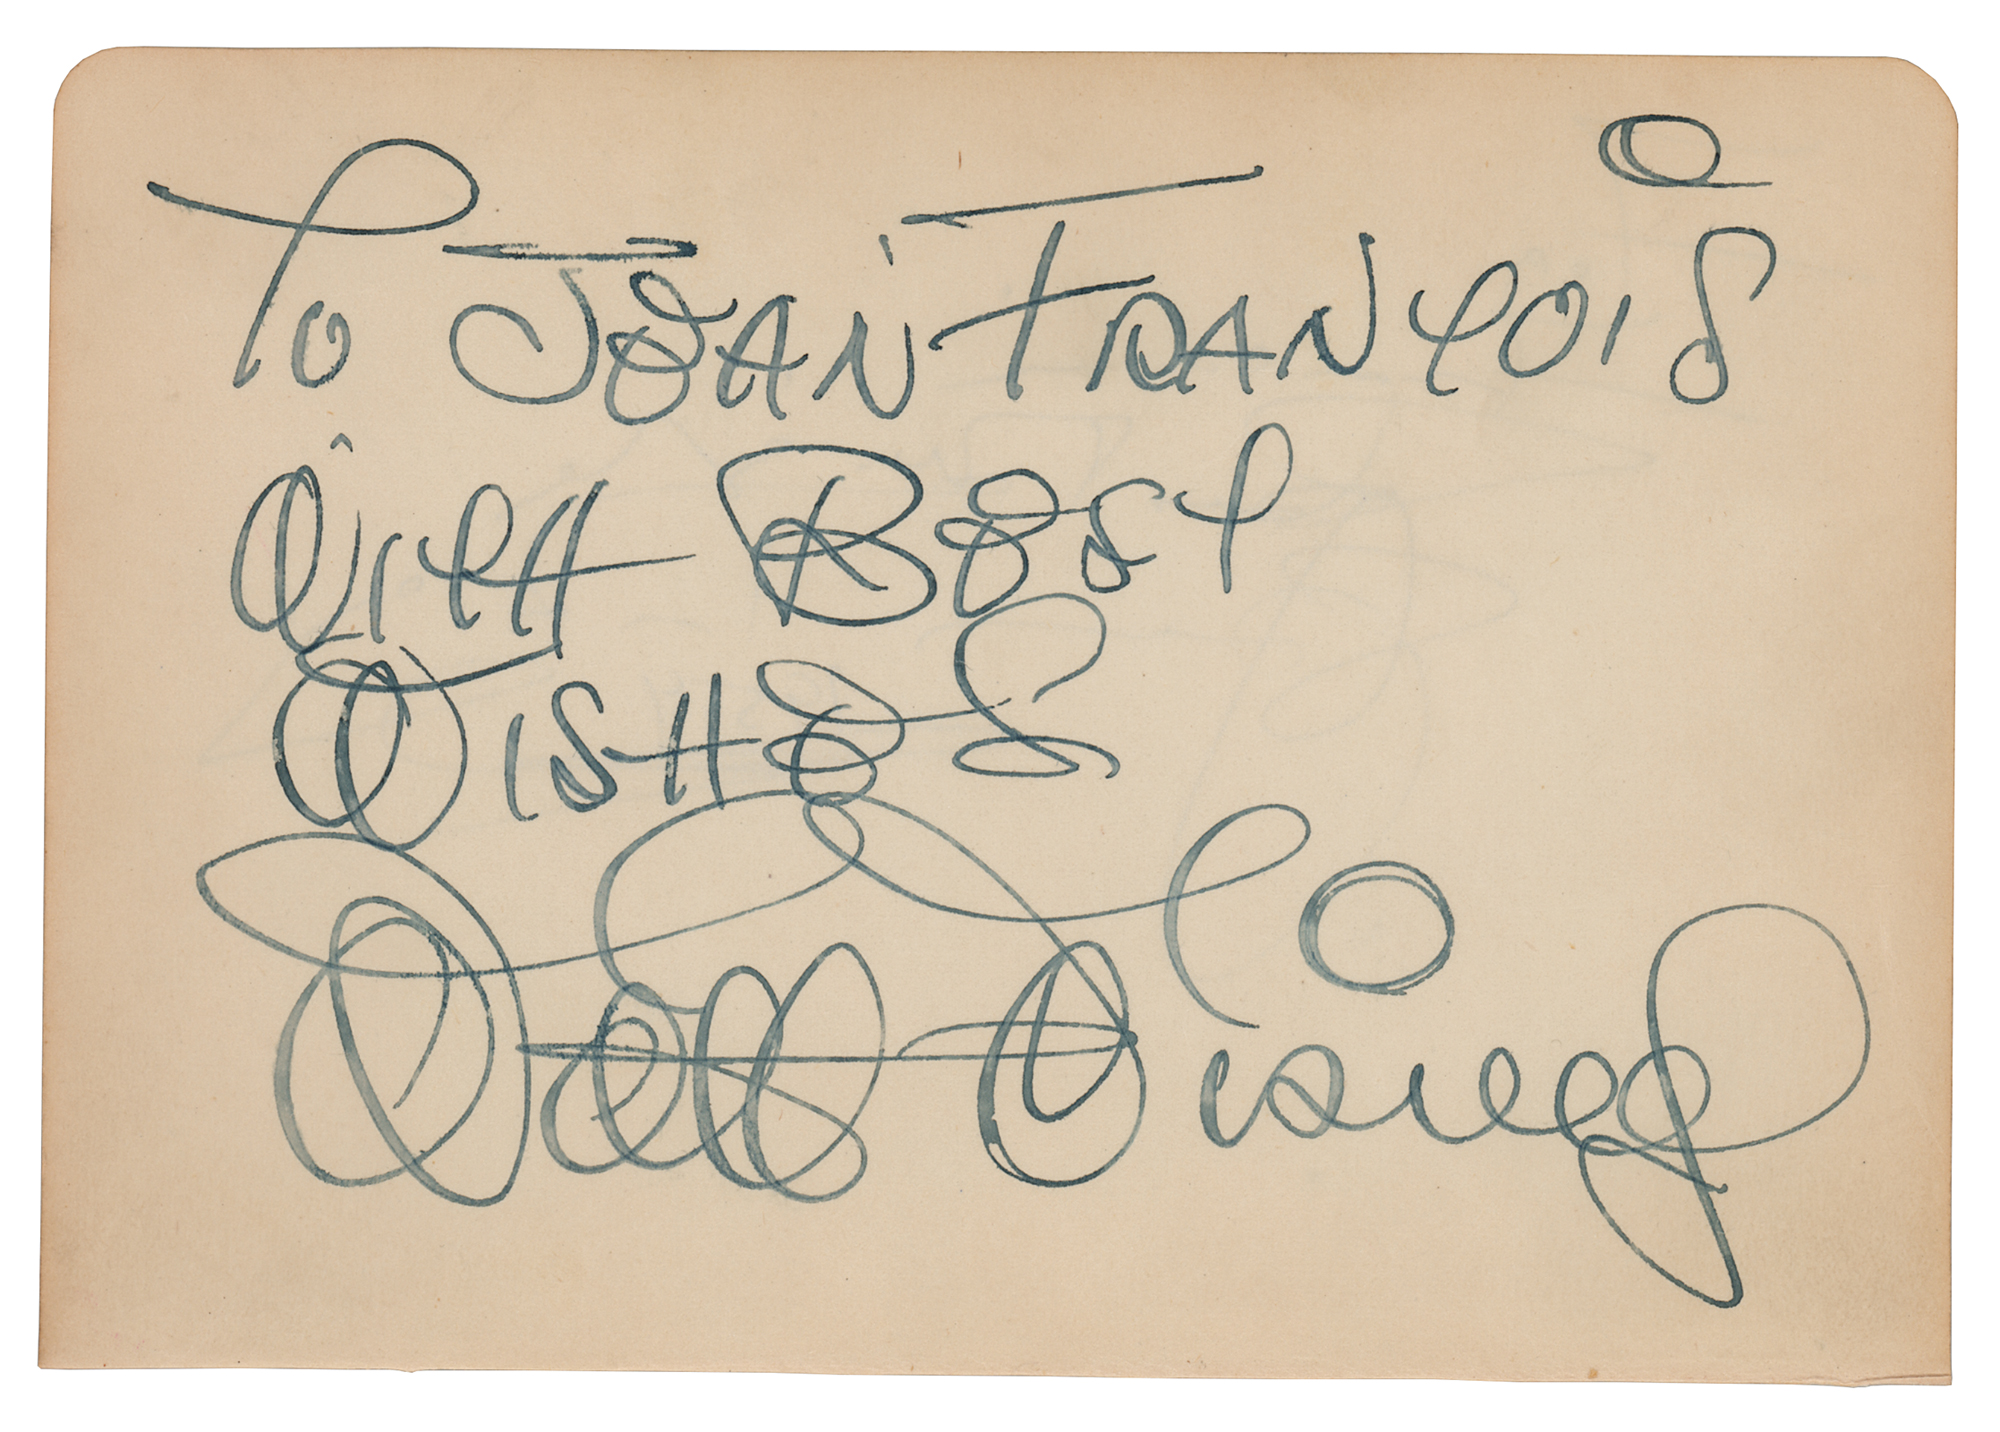 To JEAN FRANÇOIS
WITH BEST
WISHES
Walt Disney